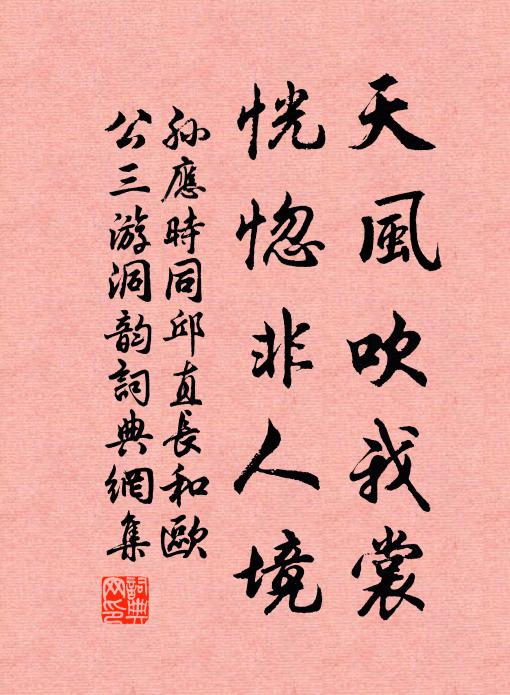 天風吹我裳
恍惚非人境
孫應時同邱直長和歐
公三游洞韵詞典網集
詞典網印